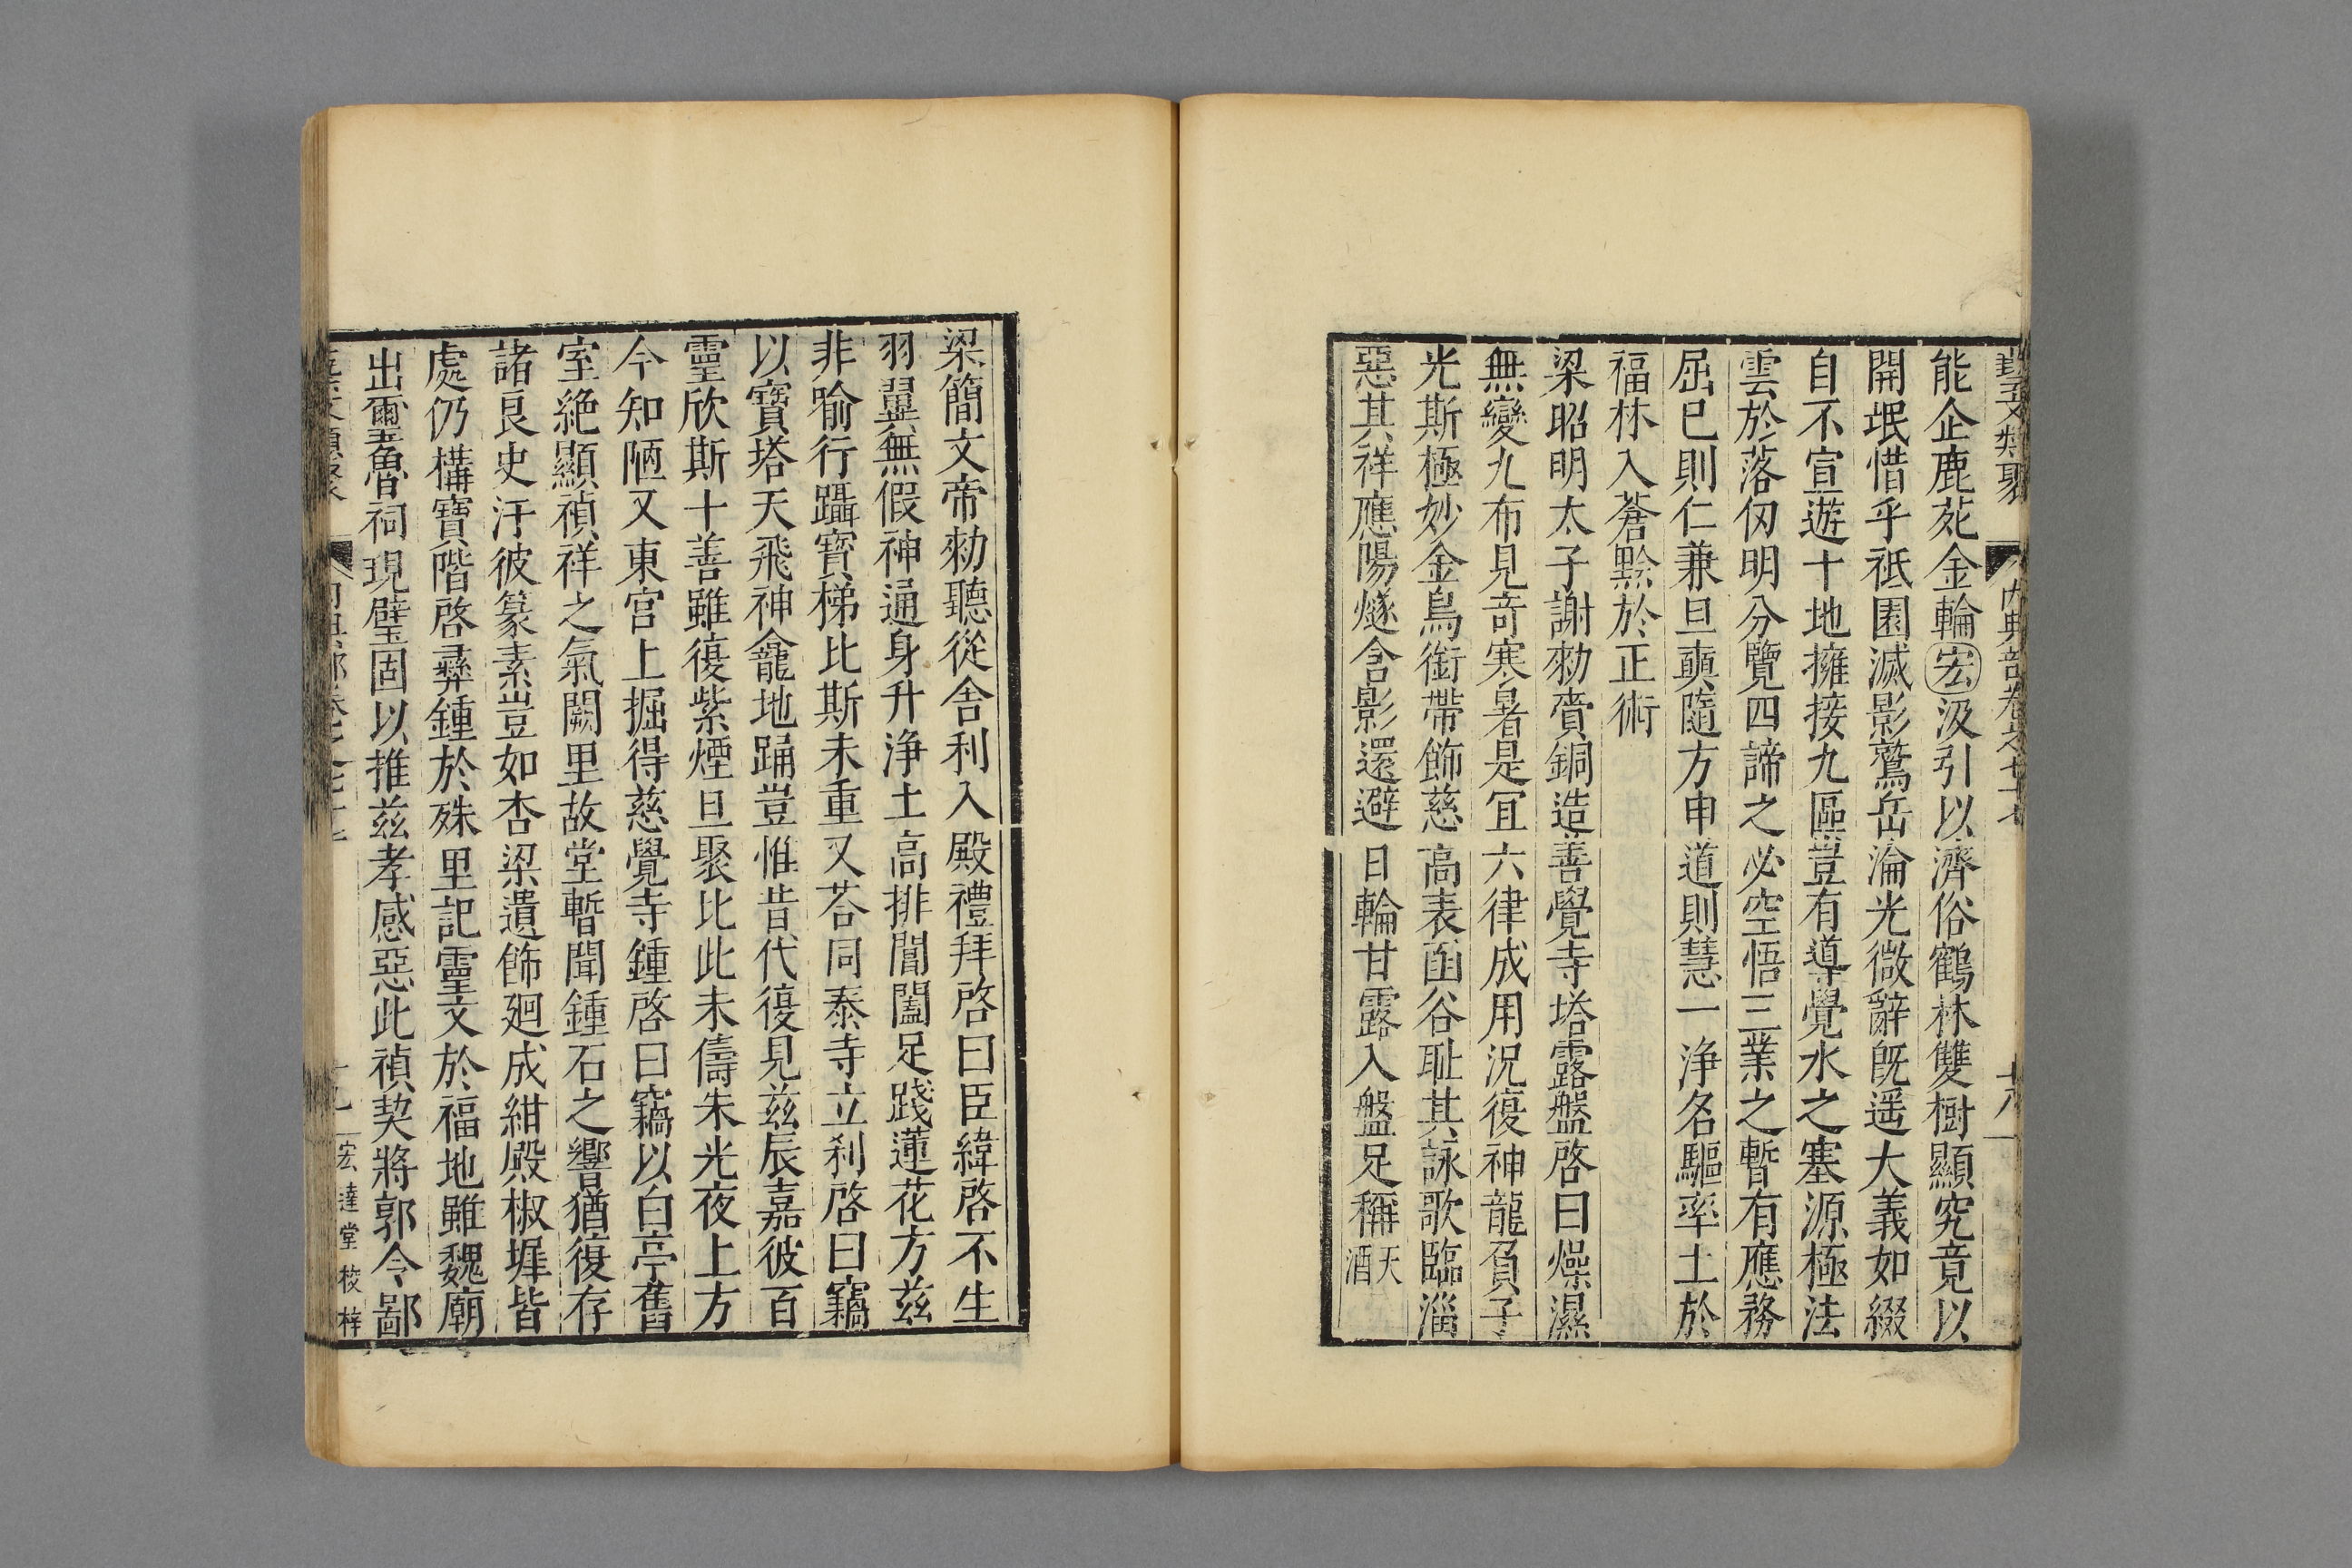 藝文類聚 內典部卷之七十七 十八
能企鹿苑金輪宏汲引以濟俗鶴林雙樹顯究竟以
開氓惜乎祇園滅影鷲岳淪光微辭旣遥大義如綴
自不宣遊十地擁接九區豈有導覺水之塞源極法
雲於落仞明分覽四諦之必空悟三業之暫有應務
屈已則仁兼旦奭隨方申道則慧一淨名驅率土於
福林入蒼黔於正術
梁昭明太子謝勑賚銅造善覺寺塔露盤啓曰燥濕
無變九布見奇寒暑是宜六律成用況復神龍負子
光斯極妙金烏銜帶飾慈高表函谷耻其詠歌臨淄
惡其祥應陽燧含影還避日輪甘露入盤足稱天酒
梁簡文帝勑聽從舍利入殿禮拜啓曰臣緯啓不生
羽翼無假神通身升淨土高排閶闔足踐蓮花方兹
非喻行躡寳梯比斯未重又荅同泰寺立刹啓曰竊
以寶塔天飛神龕地踊豈惟昔代復見兹辰嘉彼百
靈欣斯十善雖復紫煙旦聚比此未儔朱光夜上方
今知陋又東宮上掘得慈覺寺鍾啓曰竊以白亭舊
室絶顯禎祥之氣闕里故堂暫聞鍾石之響猶復存
諸良史汗彼篆素豈如杏梁遺飾廻成紺殿椒墀皆
處仍構寶階啓彞鍾於殊里記靈文於福地雖魏廟
出爾璽魯祠現璧固以推兹孝感惡此禎契將郭令鄙
十九 宏達堂校梓